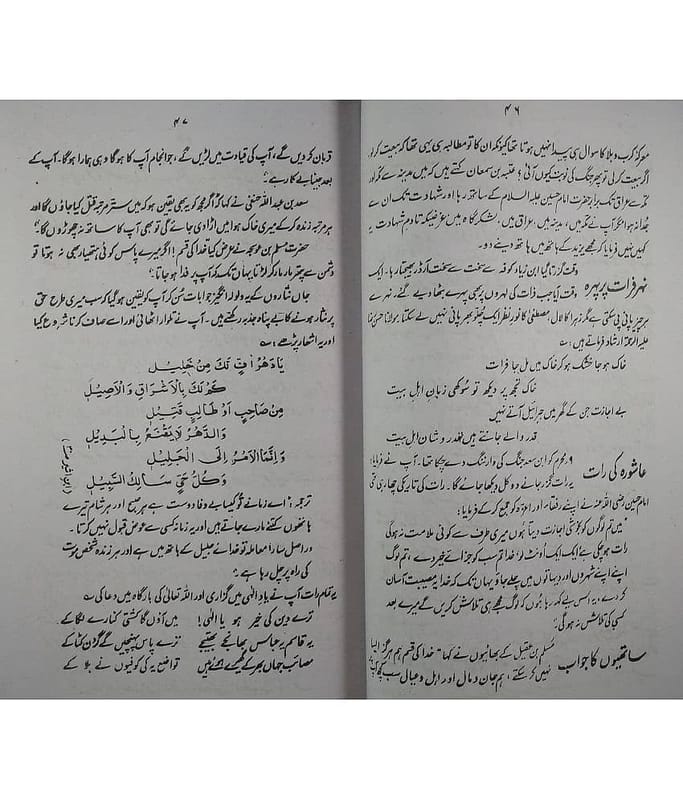 ۴۶
معرکۂ کرب و بلا کا سوال ہی پیدا نہیں ہوتا تھا کیونکہ ان کا تو مطالبہ ہی یہی تھا کہ بیعت کر لو
اگر بیعت کر لی تو پھر جنگ کی نوبت کیوں آئی؟ عقبہ بن سمعان کہتے ہیں کہ میں مدینہ سے مکہ اور
مکہ سے عراق تک برابر حضرت امام حسین علیہ السلام کے ساتھ رہا اور شہادت تک ان سے
جدا نہ ہوا مگر آپ نے مکہ میں، مدینہ میں، عراق میں، لشکر گاہ میں غرضیکہ تا دم شہادت یہ
کہیں نہیں فرمایا کہ مجھے یزید کے ہاتھ میں ہاتھ دینے دو۔
نہر فرات پر پہرہ
وقت گزرتا گیا ابن زیاد کوفہ سے سخت سے سخت آرڈر بھیجتا رہا۔ ایک
وقت آیا جب فرات کی لہروں پر بھی پہرے بٹھا دیے گئے۔ نہر سے
ہر چیز پانی پی سکتی ہے مگر زہرا کا لال، مصطفیٰ کا نور نظر ایک چلو بھر پانی نہیں لے سکتا۔ مولانا حسن رضا
علیہ الرحمۃ ارشاد فرماتے ہیں:
خاک ہو جا خشک ہو کر خاک میں مل جا فرات
خاک تجھ پر دیکھ تو سوکھی زبانِ اہل بیت
بے اجازت جن کے گھر میں جبرائیل آتے نہیں
قدر والے جانتے ہیں قدر و شان اہل بیت
عاشورہ کی رات
۹ محرم کو ابن سعد جنگ کی وارننگ دے چکا تھا۔ آپ نے فرمایا:
یہ رات گزر جانے دو کل دیکھا جائے گا۔ رات کی تاریکی چھا رہی تھی
امام حسین رضی اللہ عنہ نے اپنے رفقاء اور اعزہ کو جمع کر کے فرمایا:
"میں تم لوگوں کو بخوشی اجازت دیتا ہوں میری طرف سے کوئی ملامت نہ ہو گی
رات ہو چکی ہے ایک ایک اونٹ لو خدا تم سب کو جزائے خیر دے، تم لوگ
اپنے اپنے شہروں اور دیہاتوں میں چلے جاؤ یہاں تک کہ خدا یہ مصیبت آسان
کر دے، یہ اس لیے کہہ رہا ہوں کہ لوگ مجھے ہی تلاش کریں گے میرے بعد
کسی کی تلاش نہ ہو گی"
ساتھیوں کا جواب
مسلم بن عقیل کے بھائیوں نے کہا "خدا کی قسم ہم ہرگز ایسا
نہیں کر سکتے، ہم جان و مال اور اہل و عیال سب کچھ آپ پر
۴۷
قربان کر دیں گے، آپ کی قیادت میں لڑیں گے، جو انجام آپ کا ہو گا وہی ہمارا ہو گا۔ آپ کے
بعد جینا بے کار ہے"
سعد بن عبد اللہ حنفی نے کہا اگر مجھ کو یہ بھی یقین ہو کہ میں ستر مرتبہ قتل کیا جاؤں گا اور
ہر مرتبہ زندہ کر کے میری خاک ہوا میں اڑا دی جائے گی تو بھی آپ کا ساتھ نہ چھوڑوں گا"
حضرت مسلم بن عوسجہ نے عرض کیا خدا کی قسم! اگر میرے پاس کوئی ہتھیار بھی نہ ہوتا تو
دشمن سے پتھر مار مار کر لڑتا یہاں تک کہ آپ پر فدا ہو جاتا"
جاں نثاروں کے یہ ولولہ انگیز جوابات سن کر آپ کو یقین ہو گیا کہ سب میری طرح حق
پر نثار ہونے کا بے پناہ جذبہ رکھتے ہیں۔ آپ نے تلوار اٹھائی اور اسے صاف کرنا شروع کیا
اور یہ اشعار پڑھے:
یَا دَهْرُ اُفٍّ لَكَ مِنْ خَلِیْلٍ
كَمْ لَكَ بِالْاَشْرَاقِ وَالْاَصِیْلِ
مِنْ صَاحِبٍ اَوْ طَالِبٍ قَتِیْلٍ
وَالدَّهْرُ لَا یَقْنَعُ بِالْبَدِیْلِ
وَاِنَّمَا الْاَمْرُ اِلَى الْجَلِیْلِ
وَكُلُّ حَیٍّ سَالِكُ السَّبِیْلِ
ترجمہ: اے زمانے تو کیسا بے وفا دوست ہے ہر صبح اور ہر شام تیرے
ہاتھوں کتنے مارے جاتے ہیں اور یہ زمانہ کسی سے عوض قبول نہیں کرتا۔
دراصل سارا معاملہ تو خدائے جلیل کے ہاتھ میں ہے اور ہر زندہ شخص موت
کی راہ پر چل رہا ہے"
یہ تمام رات آپ نے یاد الٰہی میں گزاری اور اللہ تعالیٰ کی بارگاہ میں دعا کی
ترے دین کی خیر ہو یا الٰہی! میں آؤں گا کشتی کنارے لگا کے
یہ قاسم یہ عباس بھانجے بھتیجے ترے پاس پہنچیں گے گردن کٹا کے
مصائب جہاں بھر کے گھیرے ہوئے ہیں تواضع یہ کی کوفیوں نے بلا کے